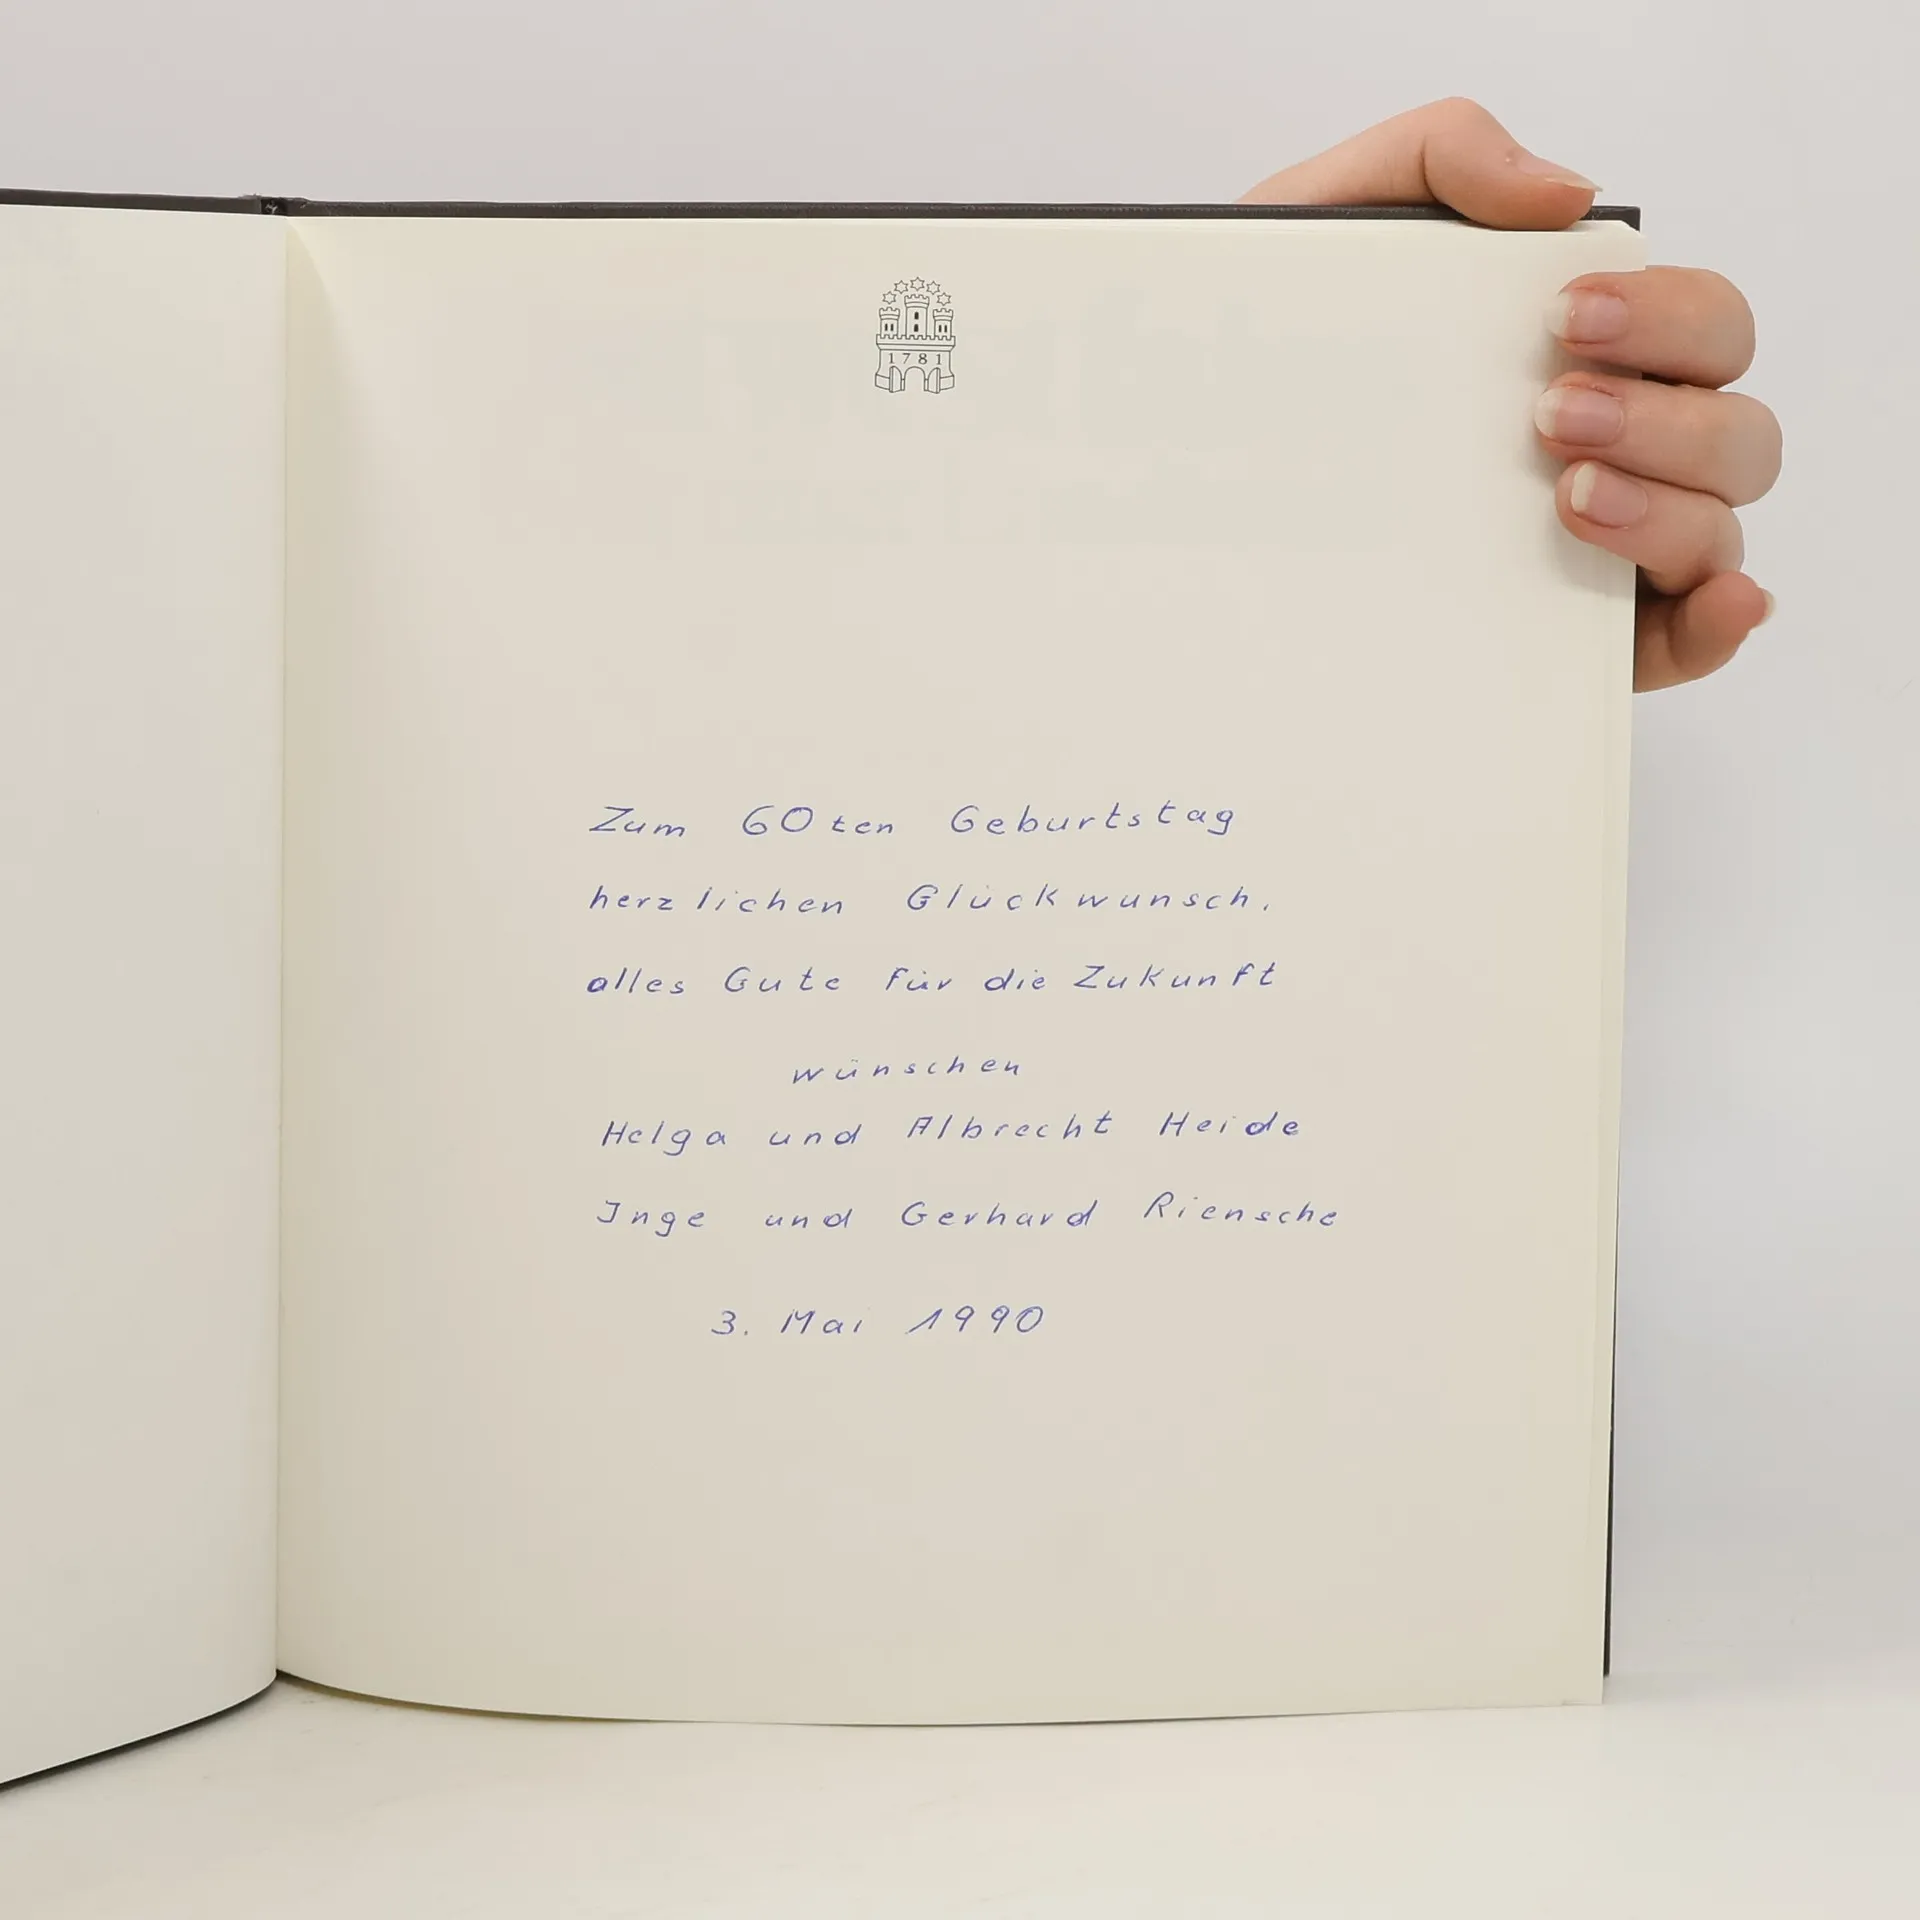 1781
Zum 60ten Geburtstag
herzlichen Glückwunsch,
alles Gute für die Zukunft
wünschen
Helga und Albrecht Heide
Inge und Gerhard Riensche
3. Mai 1990